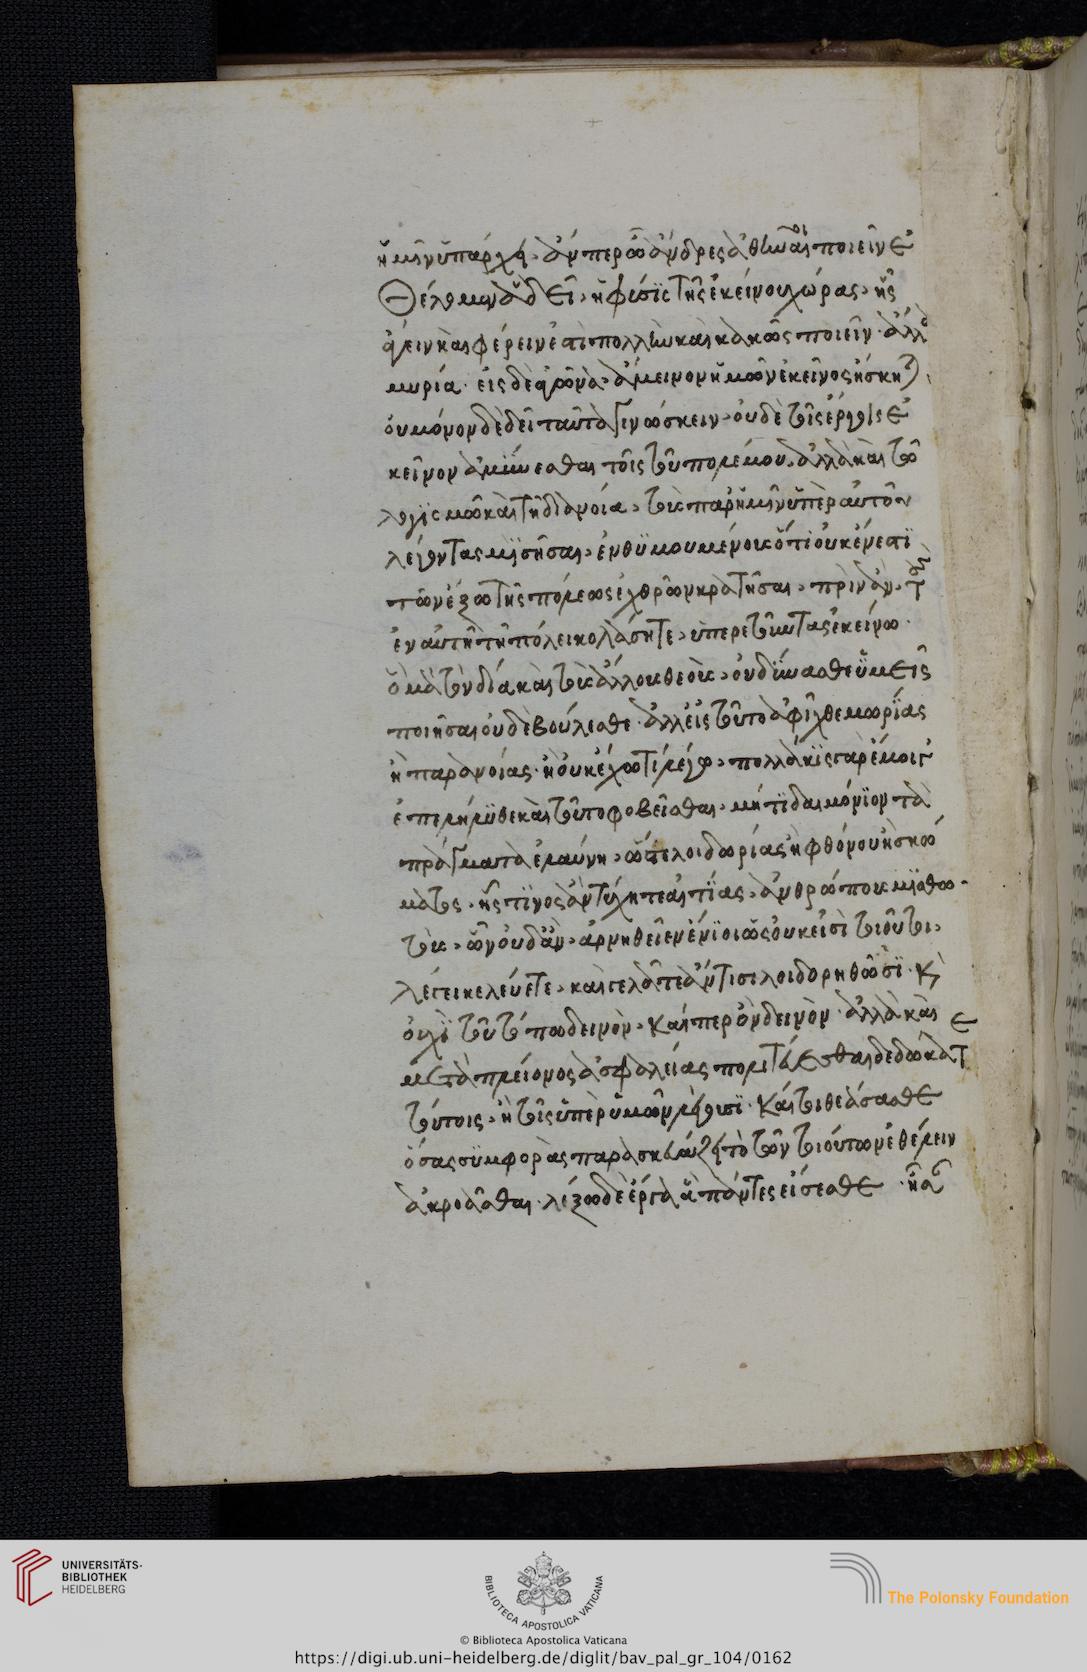 ἡμῖν ὑπάρχει, ἄνπερ ὦ ἄνδρες ἀθηναῖοι ποιεῖν ἐ
θέλωμεν ἃ δεῖ, ἡ φύσις τῆς ἐκείνου χώρας, ἧς
ἄγειν καὶ φέρειν ἐστὶ πολλὴν καὶ κακῶς ποιεῖν· ἄλλα
μυρία· εἰς δὲ ἀγῶνα, ἄμεινον ἡμῶν ἐκεῖνος ἤσκηται.
οὐ μόνον δὲ δεῖ ταῦτα γινώσκειν, οὐδὲ τοῖς ἔργοις ἐ
κεῖνον ἀμύνεσθαι τοῖς τοῦ πολέμου, ἀλλὰ καὶ τῶ
λογισμῶ καὶ τῆ διανοία, τοὺς παρ' ἡμῖν ὑπὲρ αὐτοῦ
λέγοντας μισῆσαι, ἐνθυμουμένους ὅτι οὐκ ἔνεστι
τῶν ἔξω τῆς πόλεως ἐχθρῶν κρατῆσαι, πρὶν ἂν τοὺς
ἐν αὐτῆ τῆ πόλει κολάσητε, ὑπηρετοῦντας ἐκείνω·
ὃ μὰ τὸν δία καὶ τοὺς ἄλλους θεοὺς, οὐ δύνασθε ὑμεῖς
ποιῆσαι οὐδὲ βούλεσθε· ἀλλ' εἰς τοῦτο ἀφῖχθε μωρίας
ἢ παρανοίας· ἢ οὐκ ἔχω τί λέγω, πολλάκις γὰρ ἔμοιγ'
ἐπελήλυθε καὶ τοῦτο φοβεῖσθαι, μή τι δαιμόνιον τὰ
πράγματα ἐλαύνη, ὥστε λοιδορίας ἢ φθόνου ἢ σκώ
ματος, ἧς τινος ἂν τύχητε αἰτίας, ἀνθρώπους μισθω
τοὺς, ὧν οὐδ' ἂν ἀρνηθεῖεν ἔνιοι ὡς οὐκ εἰσὶ τοιοῦτοι,
λέγειν κελεύετε, καὶ γελᾶτε ἄν τισι λοιδορηθῶσι· κ(αὶ)
οὐχὶ τοῦτό πω δεινὸν, καίπερ ὂν δεινὸν· ἀλλὰ καὶ
μετὰ πλείονος ἀσφαλείας πολιτεύεσθαι δεδώκατε
τούτοις, ἢ τοῖς ὑπὲρ ὑμῶν λέγουσι· καίτοι θεάσασθε
ὅσας συμφορὰς παρασκευάζει τὸ τῶν τοιούτων ἐθέλειν
ἀκροᾶσθαι· λέξω δὲ ἔργα ἃ πάντες εἴσεσθε· ἦν